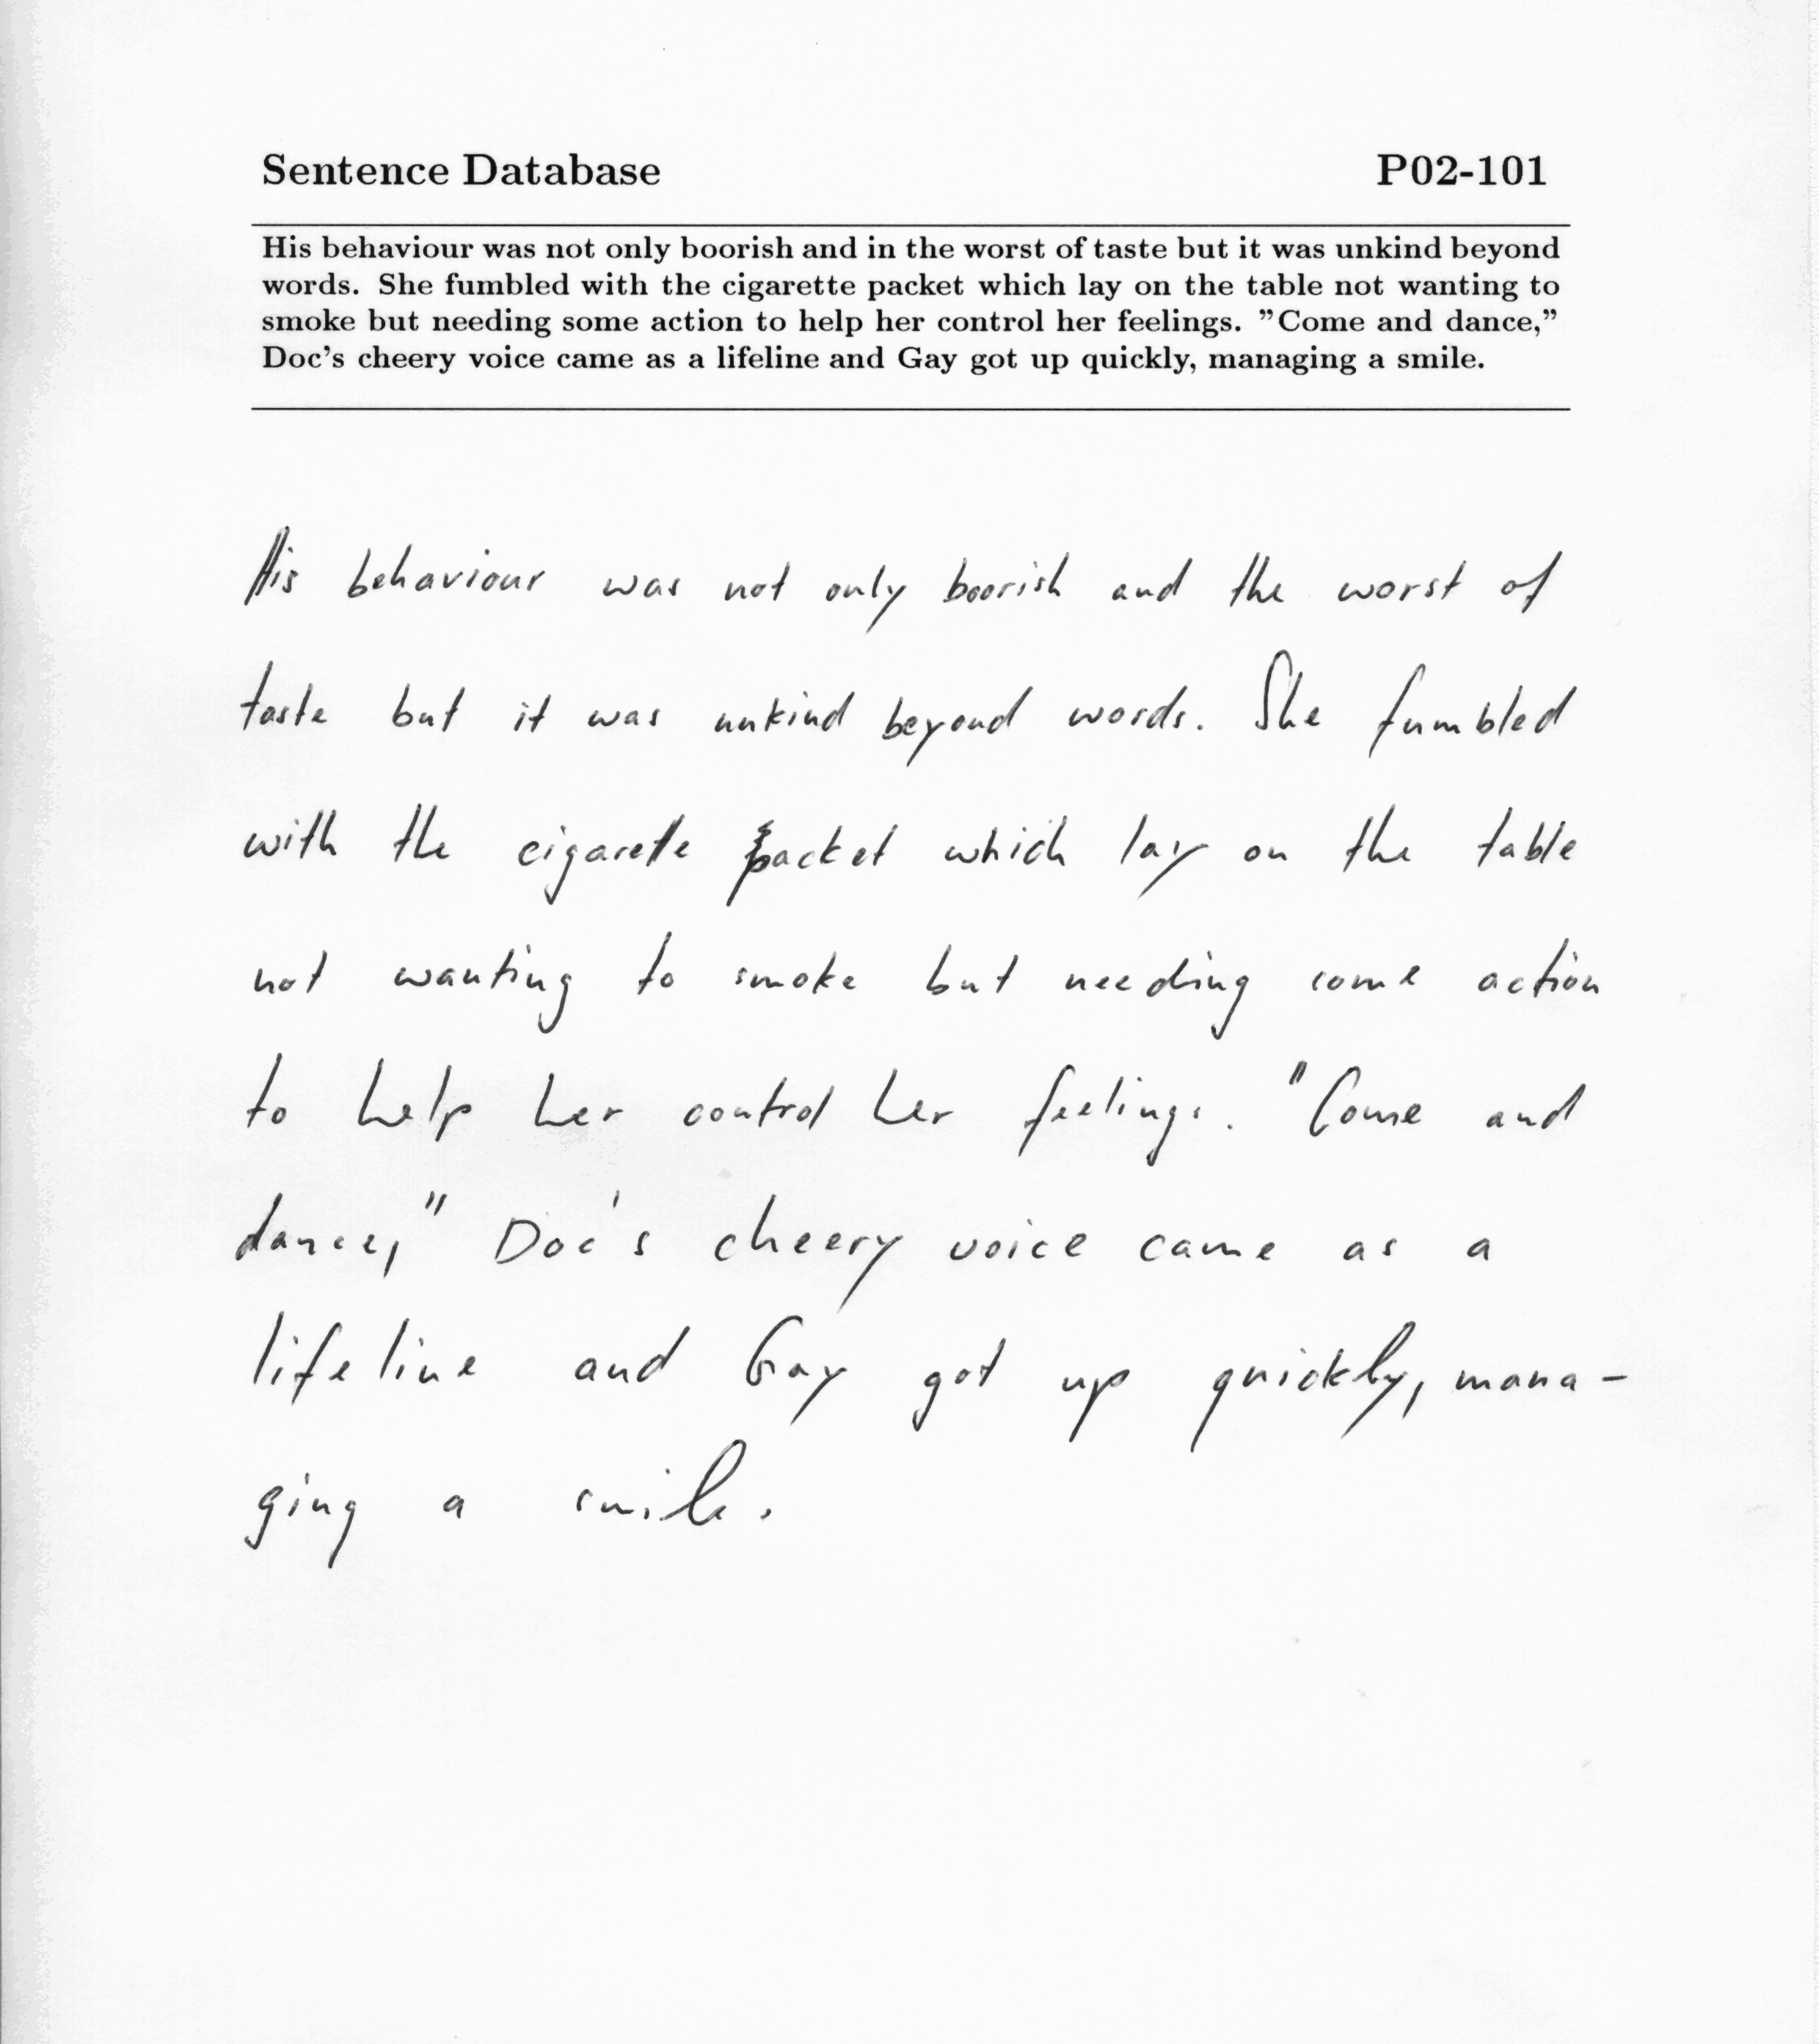 Sentence Database P02-101
His behaviour was not only boorish and in the worst of taste but it was unkind beyond
words. She fumbled with the cigarette packet which lay on the table not wanting to
smoke but needing some action to help her control her feelings. ”Come and dance,”
Doc’s cheery voice came as a lifeline and Gay got up quickly, managing a smile.
His behaviour was not only boorish and the worst of
taste but it was unkind beyond words. She fumbled
with the cigarette packet which lay on the table
not wanting to smoke but needing some action
to help her control her feelings. "Come and
dance," Doc's cheery voice came as a
lifeline and Gay got up quickly, mana-
ging a smile.